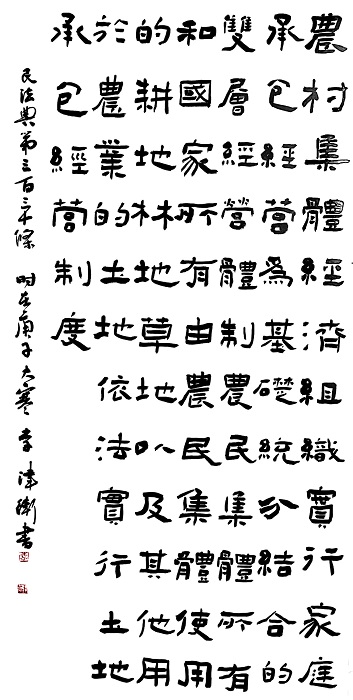 農村集體經濟組織實行家庭
承包經營為基礎統分結合的
雙層經營體制農民集體所有
和國家所有由農民集體使用
的耕地林地草地以及其他用
於農業的土地依法實行土地
承包經營制度
民法典第三百三十條 時在庚子大寒 李書